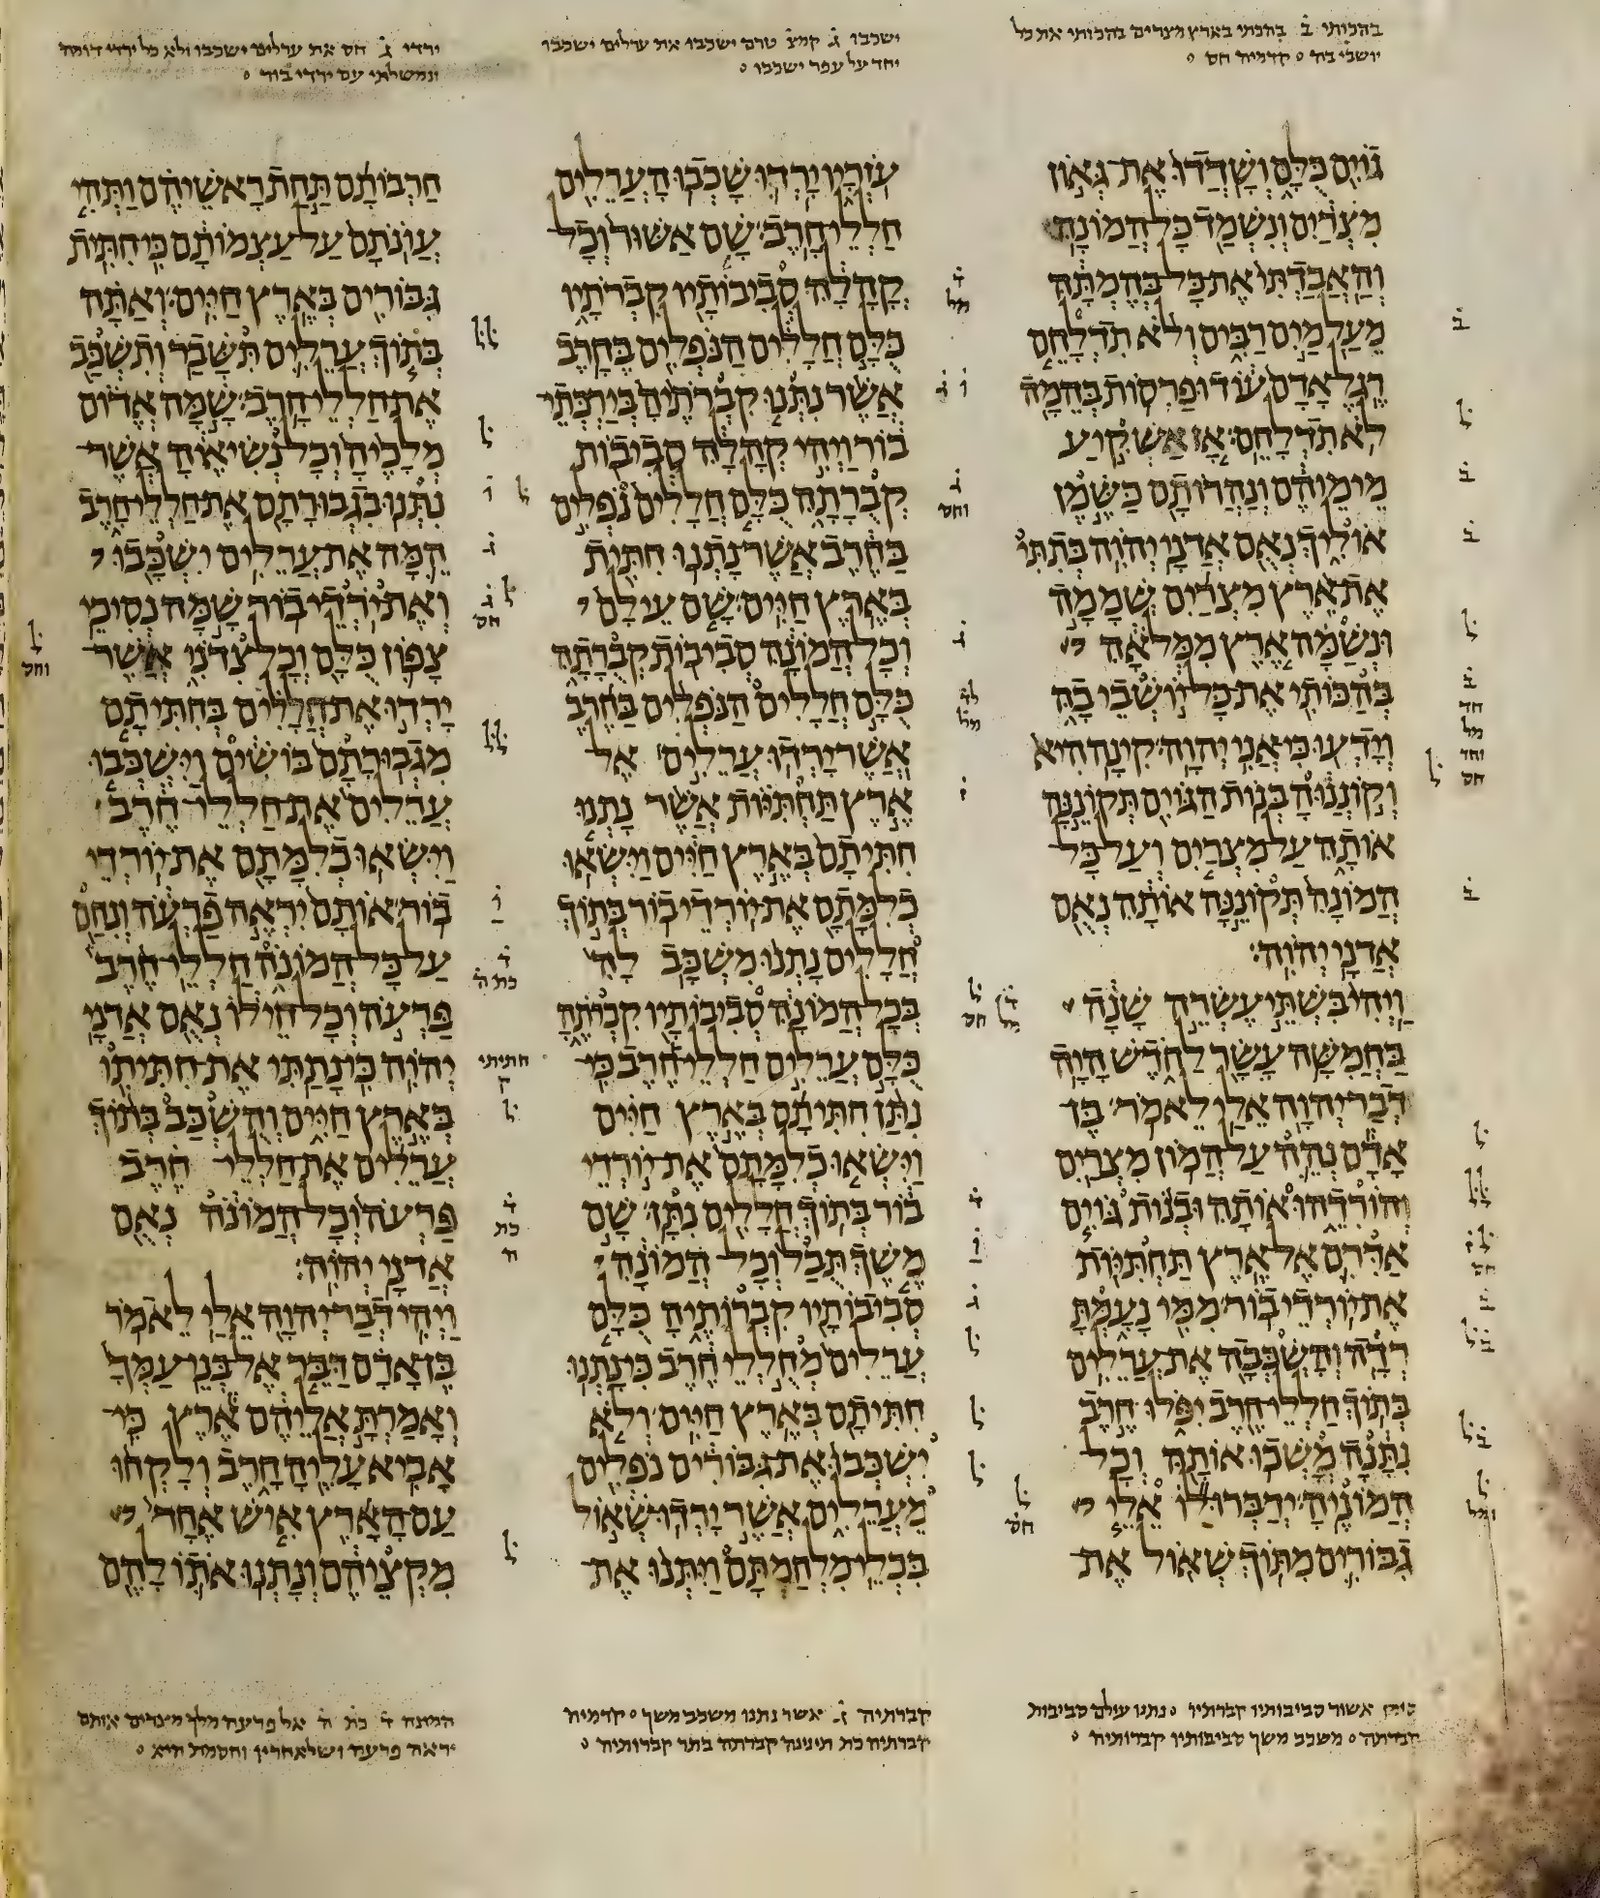 בהכותי ב בהכתי בארץ מצרים בהכותי את כל
יושבי בה קדמיה חס
ישכבו ג קמצ טרם ישכבו את ערלים ישכבו
יחד על עפר ישכבו
יורדי ג חס את ערלים ישכבו ולא כל ירדי דומה
ונמשלתי עם ירדי בור
גוים כלם ושדדו את גאון
מצרים ונשמד כל המונה
והאבדתי את כל בהמתה
מעל מים רבים ולא תדלחם
רגל אדם עוד ופרסות בהמה
לא תדלחם אז אשקיע
מימיהם ונהרותם כשמן
אוליך נאם אדני יהוה בתתי
את ארץ מצרים שממה
ונשמה ארץ ממלאה
בהכותי את כל יושבי בה
וידעו כי אני יהוה קינה היא
וקוננוה בנות הגוים תקוננה
אותה על מצרים ועל כל
המונה תקוננה אותה נאם
אדני יהוה
ויהי בשתי עשרה שנה
בחמשה עשר לחדש היה
דבר יהוה אלי לאמר בן
אדם נהה על המון מצרים
והורדהו אותה ובנות גוים
אדרם אל ארץ תחתיות
את יורדי בור ממי נעמת
רדה והשכבה את ערלים
בתוך חללי חרב יפלו חרב
נתנה משכו אותה וכל
המוניה ידברו לו אלי
גבורים מתוך שאול את
עזריו ירדו שכבו הערלים
חללי חרב שם אשור וכל
קהלה סביבותיו קברתיו
כלם חללים הנפלים בחרב
אשר נתנו קברתיה בירכתי
בור ויהי קהלה סביבות
קברתה כלם חללים נפלים
בחרב אשר נתנו חתית
בארץ חיים שם עילם
וכל המונה סביבות קברתה
כלם חללים הנפלים בחרב
אשר ירדו ערלים אל
ארץ תחתיות אשר נתנו
חתיתם בארץ חיים וישאו
כלמתם את יורדי בור בתוך
חללים נתנו משכב לה
בכל המונה סביבותיו קברתה
כלם ערלים חללי חרב כי
נתן חתיתם בארץ חיים
וישאו כלמתם את יורדי
בור בתוך חללים נתן שם
משך תבל וכל המונה
סביבותיו קברותיה כלם
ערלים מחללי חרב כי נתנו
חתיתם בארץ חיים ולא
ישכבו את גבורים נפלים
מערלים אשר ירדו שאול
בכלי מלחמתם ויתנו את
חרבותם תחת ראשיהם ותהי
עונתם על עצמותם כי חתית
גבורים בארץ חיים ואתה
בתוך ערלים תשבר ותשכב
את חללי חרב שמה אדום
מלכיה וכל נשיאיה אשר
נתנו בגבורתם את חללי חרב
המה את ערלים ישכבו
ואת ירדי בור שמה נסיכי
צפון כלם וכל צדני אשר
ירדו את חללים בחתיתם
מגבורתם בושים וישכבו
ערלים את חללי חרב
וישאו כלמתם את יורדי
בור אותם יראה פרעה ונחם
על כל המונה חללי חרב
פרעה וכל חילו נאם אדני
יהוה כי נתתי את חתיתו
בארץ חיים והשכב בתוך
ערלים את חללי חרב
פרעה וכל המונה נאם
אדני יהוה
ויהי דבר יהוה אלי לאמר
בן אדם דבר אל בני עמך
ואמרת אליהם ארץ כי
אביא עליה חרב ולקחו
עם הארץ איש אחד
מקציהם ונתנו אתו להם
אשור סביבותיו קברתיו נתנו עילם סביבות
קברתה משכב משך סביבותיו קברותיה
קברתיה ג אשר נתנו משכב משך קדמיה
קברתיה כת תינינה קברתה בתר קברותיה
המונה ד כת ה אל פרעה מלך מצרים אותם
יראה פרעה ושלאחריו וחסמת היא